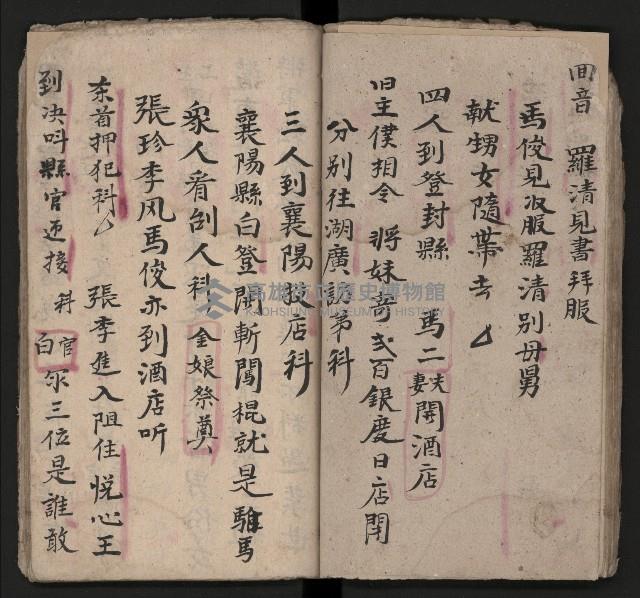 回音　羅清見書拜服
馬俊見收服羅清別母舅
献甥女隨帶去
四人到登封縣　馬二夫妻開酒店
旧主僕相会　將妹寄弍百銀度日店閉
分别往湖廣　弟科
三人到襄陽　店科
襄陽縣白登開斬闖棍就是騅馬
衆人看刣人科　金娘祭奠
張珍李风馬俊亦到酒店听
东首押犯科　張李進入阻住悦心王
到决叫縣官迎接　科　官白　尔三位是誰敢
高雄市立歷史博物館
KAOHSIUNG MUSEUM OF HISTORY